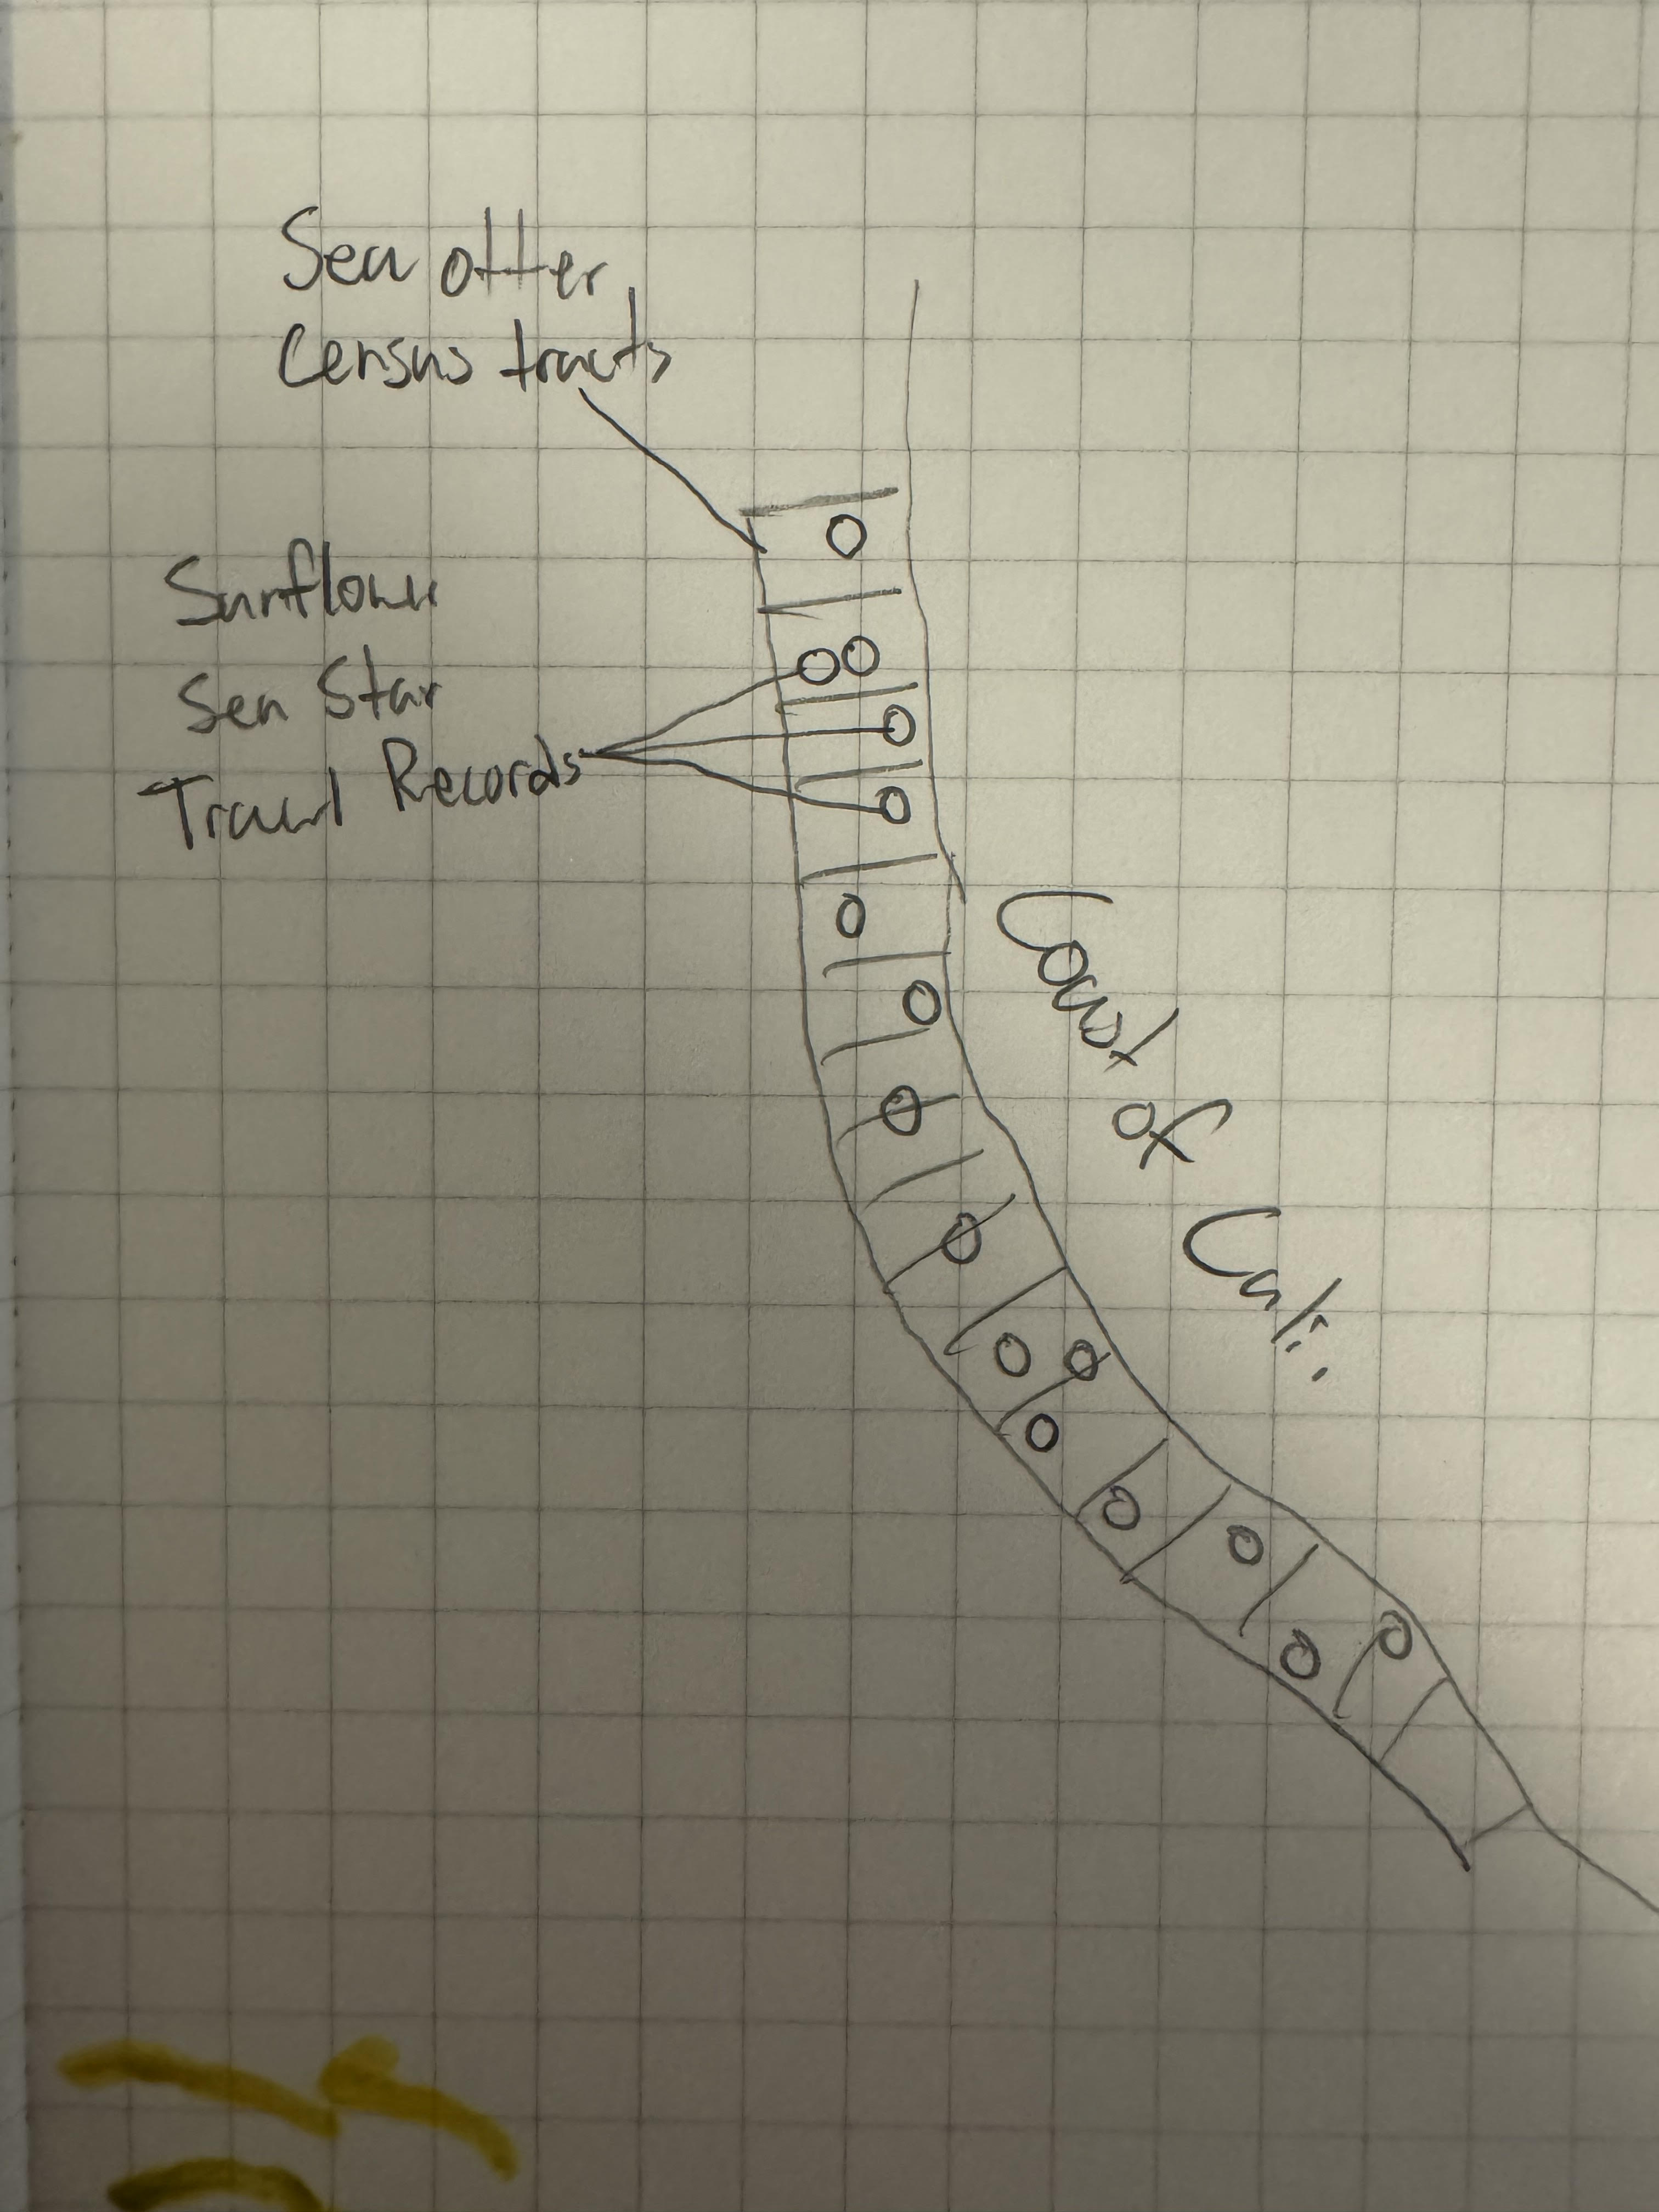 Sea otter
Census tracts
Sunflower
Sea Star
Trawl Records
Coast of Cali.